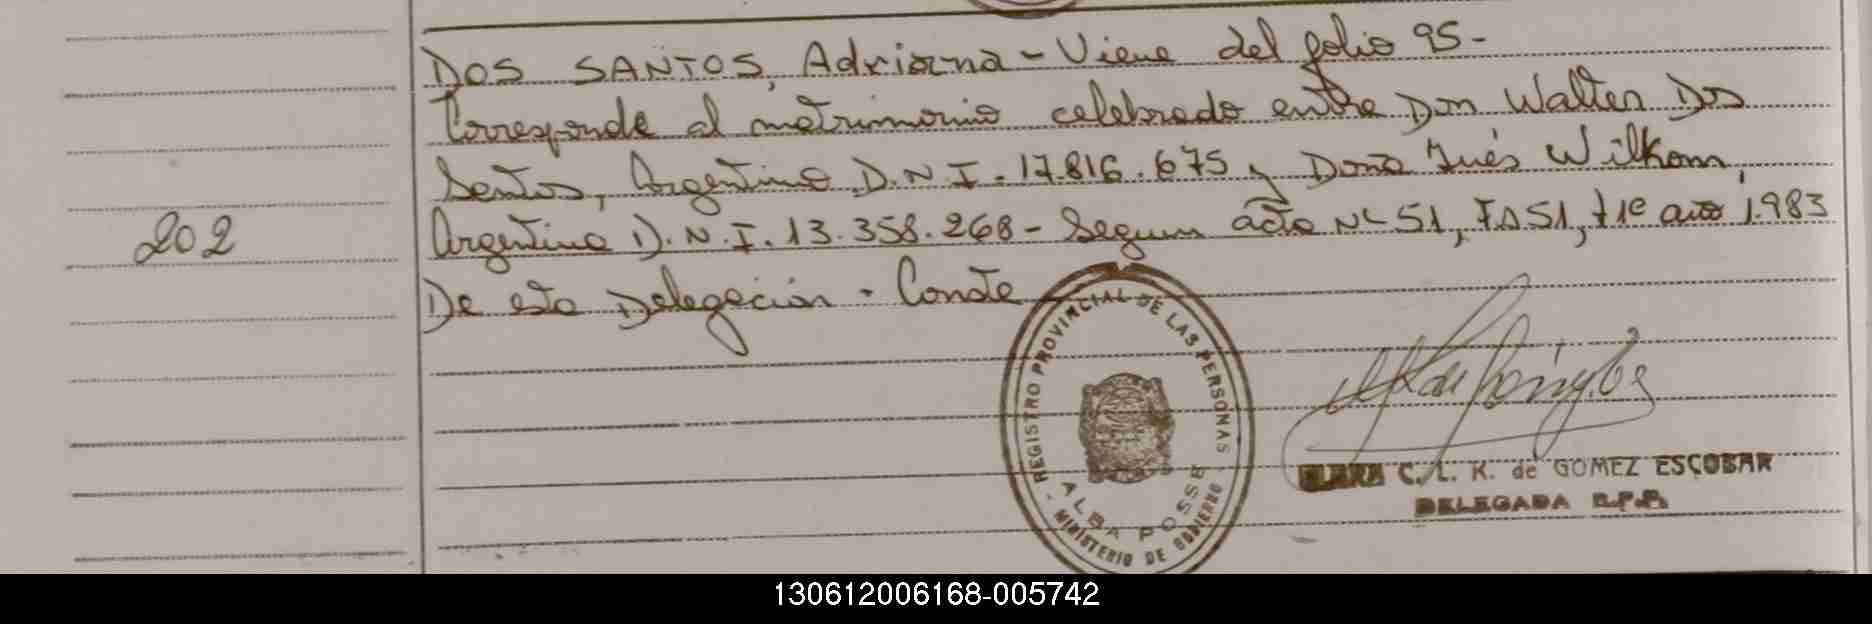 DOS SANTOS, Adriana - Viene del folio 95-
Corresponde al matrimonio celebrado entre Don Walter Dos
Santos, Argentino D.N.I. 17.816.675 y Doña Inés Wilkom,
202
Argentina D.N.I. 13.358.268 - Segun acta Nº 51, Fº 51, tº 1º año 1.983
De esta Delegación - Conste
REGISTRO PROVINCIAL DE LAS PERSONAS
ALBA POSSE
MINISTERIO DE GOBIERNO
C. L. K. de GOMEZ ESCOBAR
DELEGADA R.P.P.
130612006168-005742